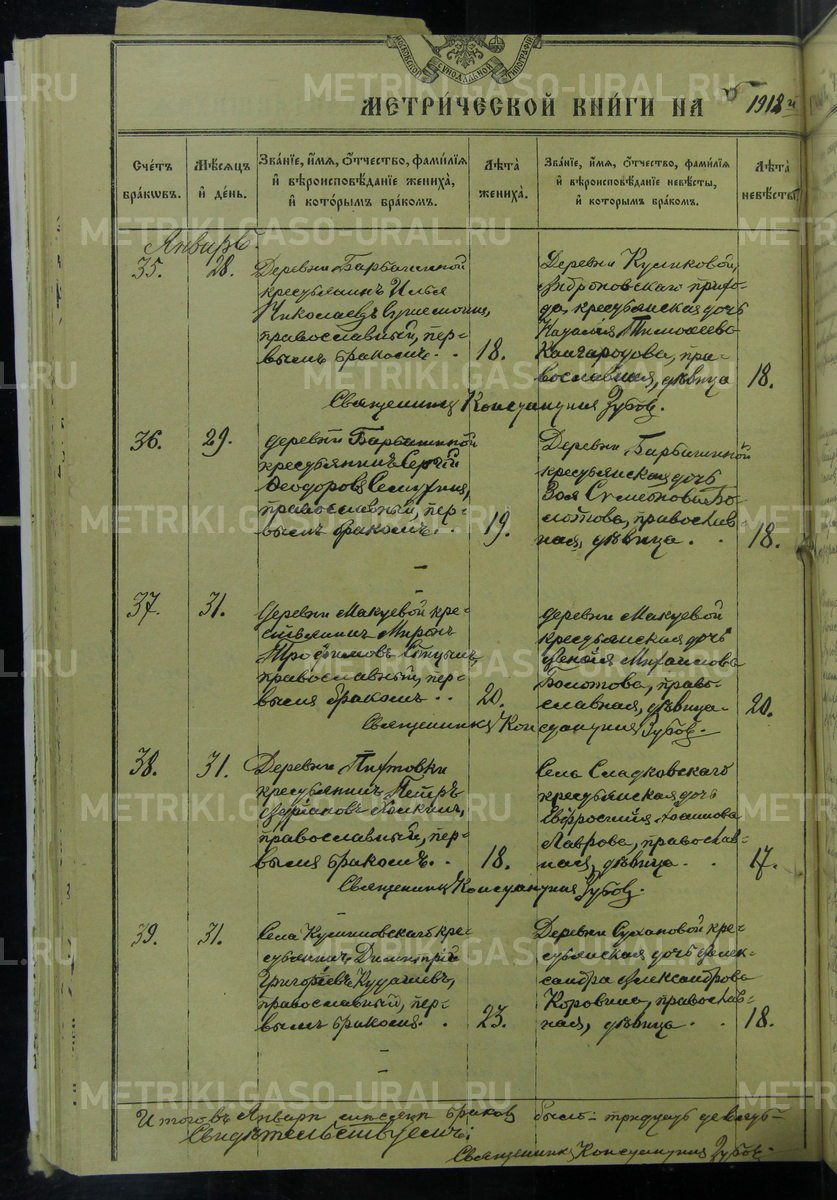 МОСКОВСКОЙ СѴНОДАЛЬНОЙ ТИПОГРАФІИ
МЕТРИ́ЧЕСКОЙ КНИ́ГИ НА 1912 й
Сче́тъ бра́ковъ.
Мѣ́сяцъ и҆ де́нь.
Зва́ніе, и҆́мя, ѻ҆́тчество, фами́лія
и҆ вѣроисповѣ́даніе жениха̀,
и҆ кото́рымъ бра́комъ.
Лѣта̀ жениха̀.
Зва́ніе, и҆́мя, ѻ҆́тчество, фами́лія
и҆ вѣроисповѣ́даніе невѣ́сты,
и҆ кото́рымъ бра́комъ.
Лѣта̀ невѣ́сты.
Январь.
35. 28.
Деревни Барабашинной
крестьянинъ Илья
Николаевъ
православный, пер-
вымъ бракомъ. . 18.
Деревни Куликовой,
прихо-
да, крестьянская дочь
Наталія Тимофеева
Кайгародова, пра-
вославная, дѣвица 18.
Священникъ Константинъ Зубов.
36. 29.
деревни
крестьянинъ Сергій
Феодоровъ
православный, пер-
вымъ бракомъ. . 19.
Деревни
крестьянская дочь
Зоя Симеонова Бо-
лотова, православ-
ная, дѣвица . . 18.
37. 31.
Деревни Макуевой кре-
стьянинъ Миронъ
Трофимовъ
православный, пер-
вымъ бракомъ . . 20.
деревни Макуевой
крестьянская дочь
Михайлова
Болотова, право-
славная, дѣвица. 20.
Священникъ Константинъ Зубов.
38. 31.
Деревни
крестьянинъ Петръ
православный, пер-
вымъ бракомъ. . 18.
Села Сладковскаго
крестьянская дочь
Евфросинія Іоаннова
Лаврова, православ-
ная, дѣвица . . 17.
Священникъ Константинъ Зубов.
39. 31.
Села кре-
стьянинъ Димитрій
Григорьевъ
православный, пер-
вымъ бракомъ. . 23.
Деревни Сухановой кре-
стьянская дочь Алек-
сандра Александрова
Коровина, православ-
ная, дѣвица . . 18.
Итого въ Январѣ мѣсяцѣ браковъ было: тридцать девять
Свидѣтельствуемъ:
Священникъ Константинъ Зубов.
METRIKI.GASO-URAL.RU